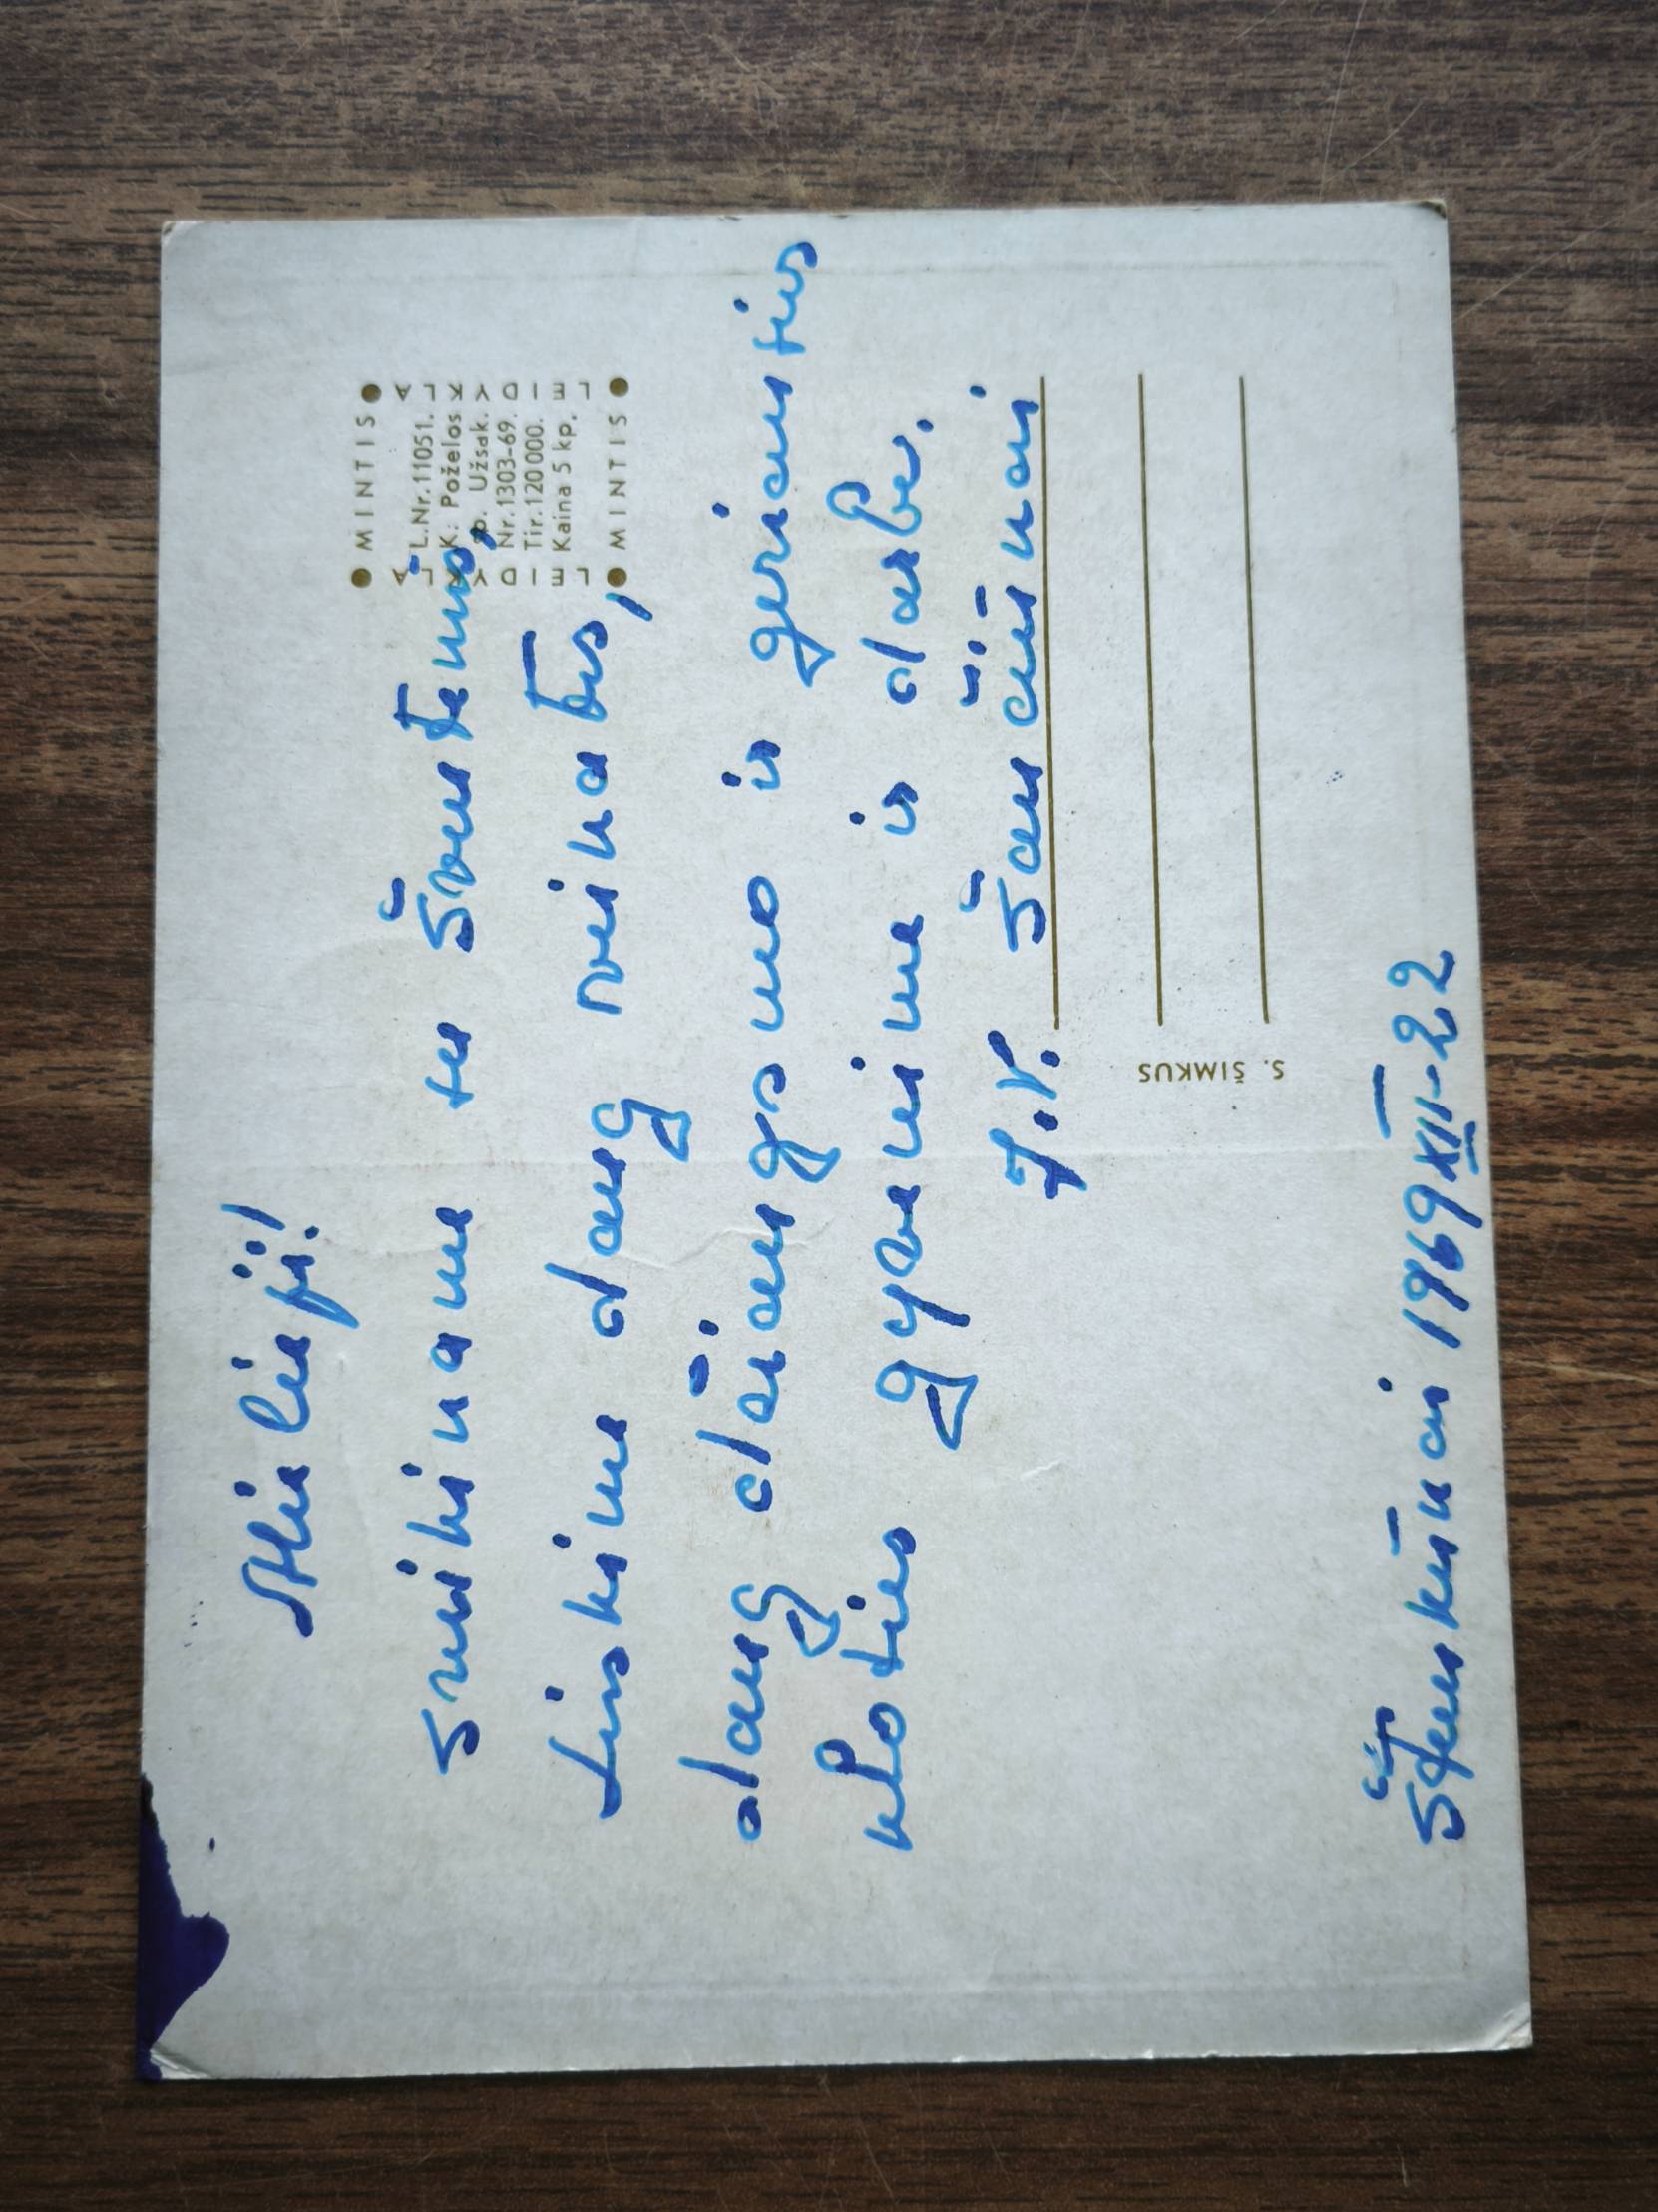 Mielieji!
Sveikiname su Šventėmis,
Linkime daug sveikatos,
daug džiaugsmo ir geriausios
kloties gyvenime ir darbe.
J.V. Sančiūnai
Šteikūnai 1969 XII-22
● MINTIS ●
L.Nr.11051.
K. Poželos
sp. Užsak.
Nr.1303-69.
Tir.120000.
Kaina 5 kp.
● MINTIS ●
LEIDYKLA
LEIDYKLA
S. ŠIMKUS